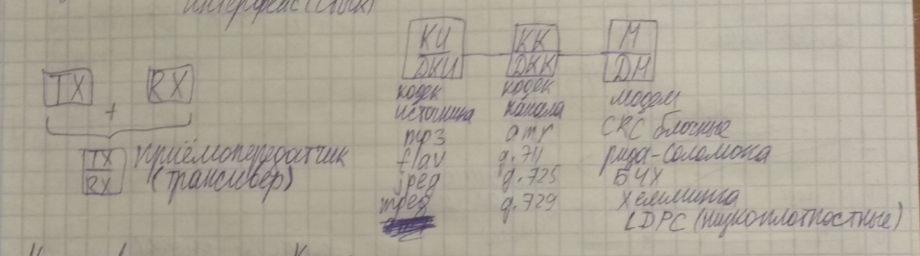 интерфейс (стык)
TX RX
+
TX
RX
приёмопередатчик
(трансивер)
КИ КК М
ДКИ ДКК ДМ
кодек
источника
mp3
flav
jpeg
mpeg
кодек
канала
amr
g.711
g.725
g.729
модем
CRC блочные
рида-соломона
БЧХ
хемминга
LDPC (низкоплотностные)